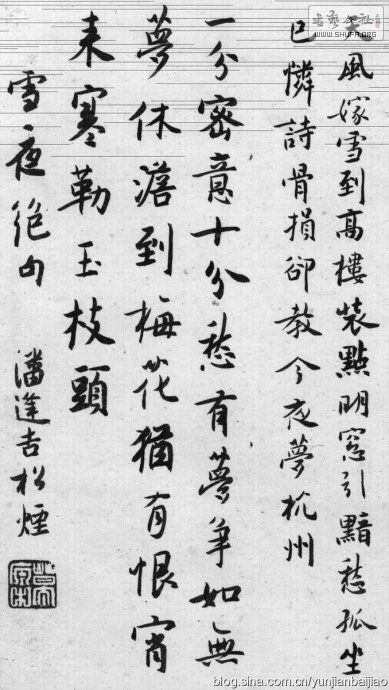 風嫁雪到高樓裝點明窓引黯愁孤坐
已憐詩骨損卻教今夜夢杭州
一分密意十分愁有夢爭如無
夢休澹到梅花猶有恨宵
来寒勒玉枝頭
雪夜絕句 潘逢吉松煙
WWW.SHUFA.ORG
blog.sina.com.cn/yunjianbaijiao